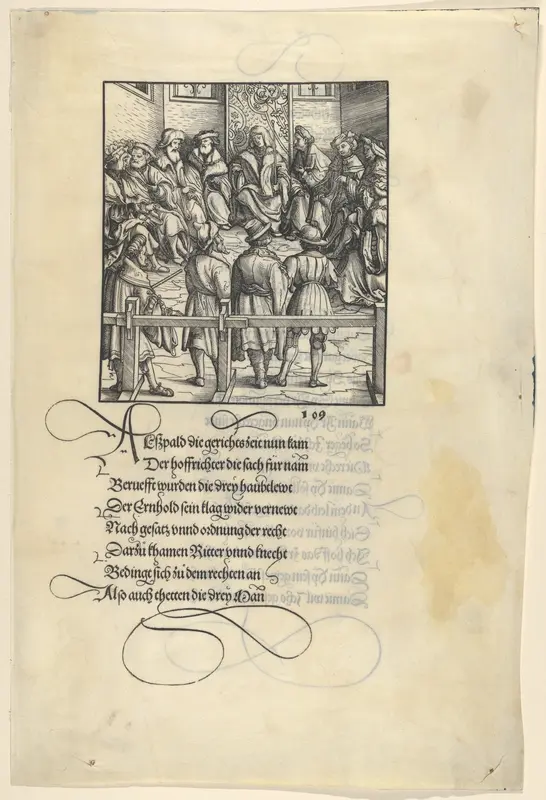 109
Alßpald die gerichts zeit nun kam
Der hoffrichter die sach für nam
Beruefft wurden die drey haubtlewt
Der Ernhold sein klag wider vernewt
Nach gesatz vnnd ordnung der recht
Darzu khamen Ritter vnnd knecht
Bedingt sich zu dem rechten an
Also auch thetten die drey Man